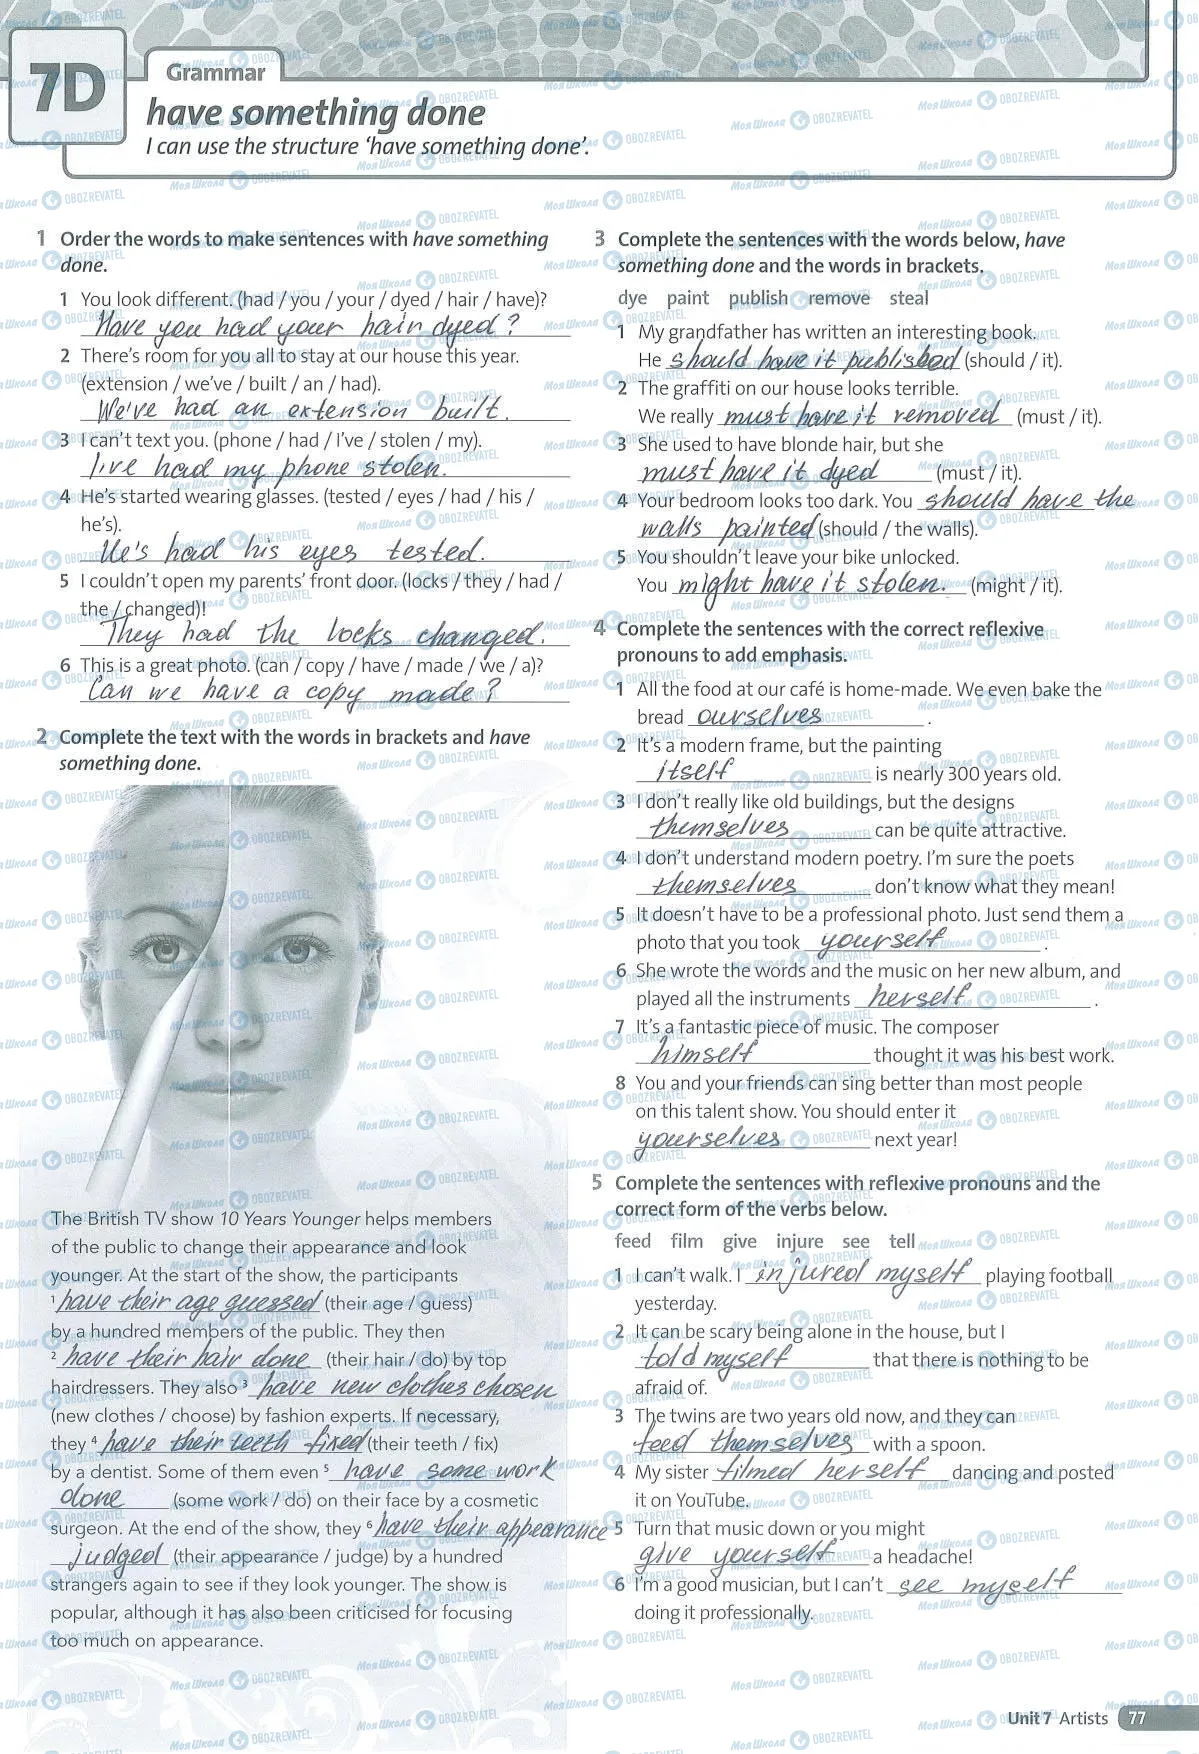 7D
Grammar
have something done
I can use the structure ‘have something done’.
1 Order the words to make sentences with have something
done.
1 You look different. (had / you / your / dyed / hair / have)?
Have you had your hair dyed?
2 There’s room for you all to stay at our house this year.
(extension / we’ve / built / an / had).
We've had an extension built.
3 I can’t text you. (phone / had / I’ve / stolen / my).
I've had my phone stolen.
4 He’s started wearing glasses. (tested / eyes / had / his /
he’s).
He's had his eyes tested.
5 I couldn’t open my parents’ front door. (locks / they / had /
the / changed)!
They had the locks changed.
6 This is a great photo. (can / copy / have / made / we / a)?
Can we have a copy made?
2 Complete the text with the words in brackets and have
something done.
The British TV show 10 Years Younger helps members
of the public to change their appearance and look
younger. At the start of the show, the participants
1 have their age guessed (their age / guess)
by a hundred members of the public. They then
2 have their hair done (their hair / do) by top
hairdressers. They also 3 have new clothes chosen
(new clothes / choose) by fashion experts. If necessary,
they 4 have their teeth fixed (their teeth / fix)
by a dentist. Some of them even 5 have some work
done (some work / do) on their face by a cosmetic
surgeon. At the end of the show, they 6 have their appearance
judged (their appearance / judge) by a hundred
strangers again to see if they look younger. The show is
popular, although it has also been criticised for focusing
too much on appearance.
3 Complete the sentences with the words below, have
something done and the words in brackets.
dye paint publish remove steal
1 My grandfather has written an interesting book.
He should have it published (should / it).
2 The graffiti on our house looks terrible.
We really must have it removed (must / it).
3 She used to have blonde hair, but she
must have it dyed (must / it).
4 Your bedroom looks too dark. You should have the
walls painted (should / the walls).
5 You shouldn’t leave your bike unlocked.
You might have it stolen. (might / it).
4 Complete the sentences with the correct reflexive
pronouns to add emphasis.
1 All the food at our café is home-made. We even bake the
bread ourselves .
2 It’s a modern frame, but the painting
itself is nearly 300 years old.
3 I don’t really like old buildings, but the designs
themselves can be quite attractive.
4 I don’t understand modern poetry. I’m sure the poets
themselves don’t know what they mean!
5 It doesn’t have to be a professional photo. Just send them a
photo that you took yourself .
6 She wrote the words and the music on her new album, and
played all the instruments herself .
7 It’s a fantastic piece of music. The composer
himself thought it was his best work.
8 You and your friends can sing better than most people
on this talent show. You should enter it
yourselves next year!
5 Complete the sentences with reflexive pronouns and the
correct form of the verbs below.
feed film give injure see tell
1 I can’t walk. I injured myself playing football
yesterday.
2 It can be scary being alone in the house, but I
told myself that there is nothing to be
afraid of.
3 The twins are two years old now, and they can
feed themselves with a spoon.
4 My sister filmed herself dancing and posted
it on YouTube.
5 Turn that music down or you might
give yourself a headache!
6 I’m a good musician, but I can’t see myself
doing it professionally.
Unit 7 Artists 77
Моя Школа OBOZREVATEL